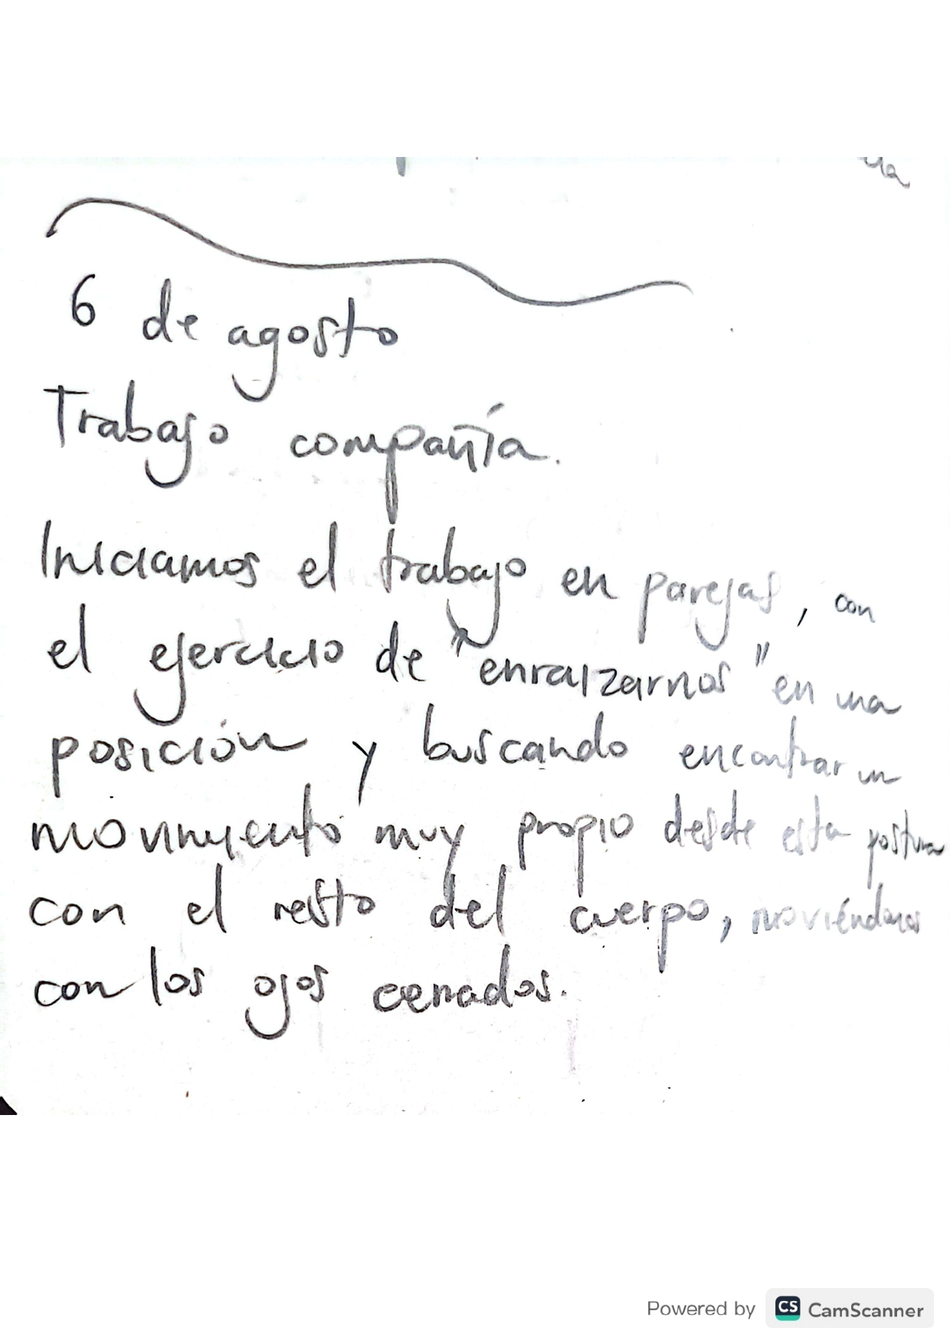 6 de agosto
Trabajo compañía.
Iniciamos el trabajo en parejas, con
el ejercicio de "enraizarnos" en una
posición y buscando encontrar un
movimyento muy propio desde esta postura
con el resto del cuerpo, moviéndonos
con los ojos cerrados.
Powered by CS CamScanner